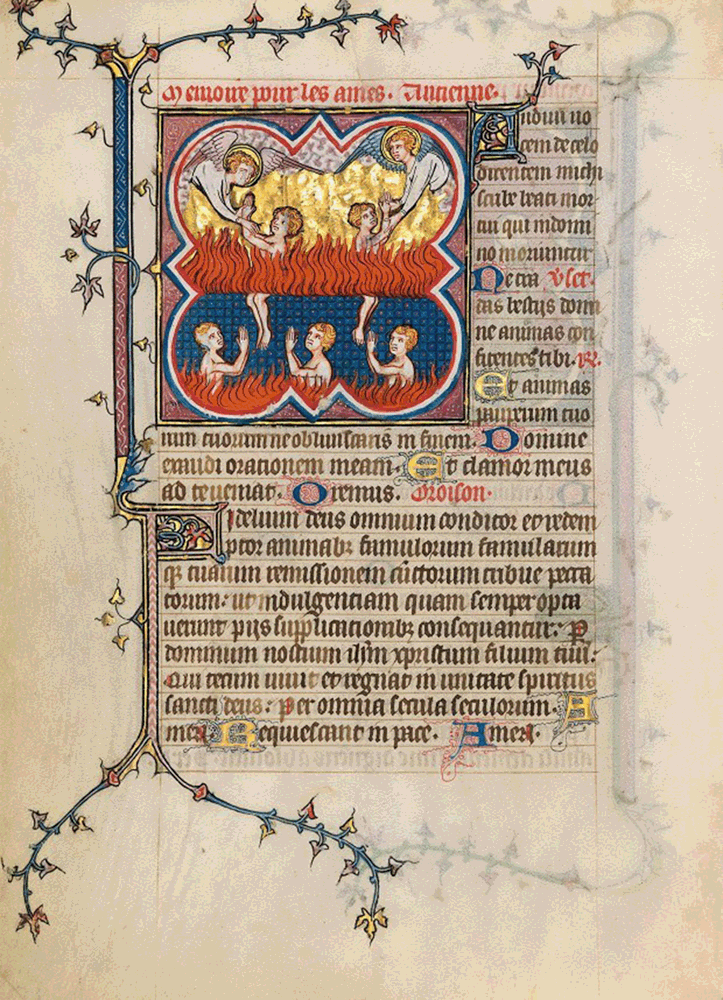 Memoire pour les ames. Antienne.
Audivi vo
cem de celo
dicentem michi
Beati mor
tui qui in domi
no moriuntur
Ne tra vset.
das bestiis domi
ne animas con
fitentes tibi. R.
Et animas
pauperum tuo
rum ne obliviscaris in finem. Domine
exaudi orationem meam. Et clamor meus
ad te veniat. Oremus. Oroison.
Fidelium deus omnium conditor et redem
ptor animabz famulorum famularum
qz tuarum remissionem cunctorum tribue pecca
torum: ut indulgentiam quam semper opta
verunt pijs supplicationibz consequantur: P
dominum nostrum ihm xpristum filium tuu:
Qui tecum vivit et regnat in unitate spiritus
sancti deus: Per omnia secula seculorum. A
men Requiescant in pace. Amen.